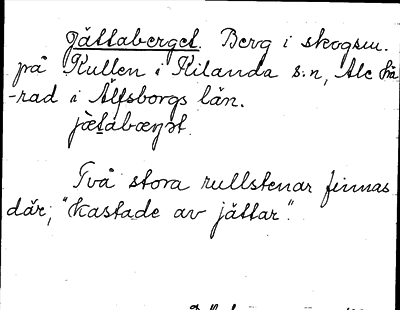 Jättaberget. Berg i skogsm.
på Kullen i Kilanda s:n, Ale hä
-rad i Älfsborgs län.
jætabærjət.
Två stora rullstenar finnas
där, "kastade av jättar".